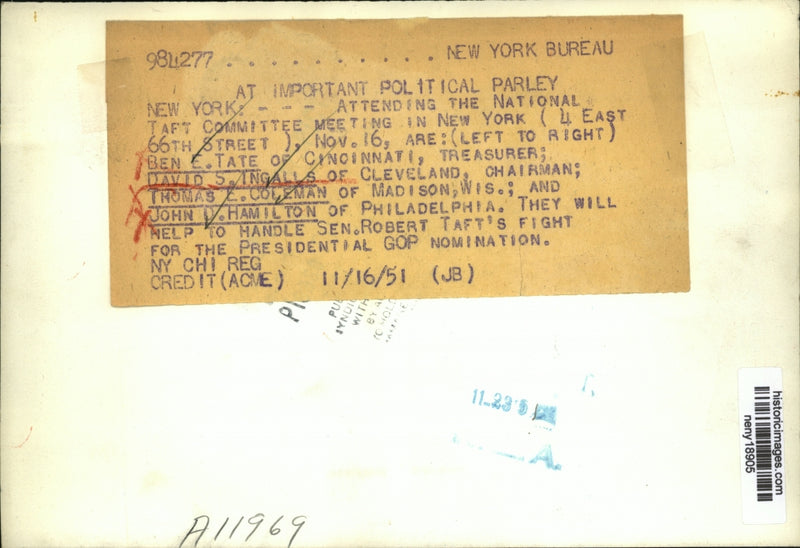 984277 . . . . . . . . . . . NEW YORK BUREAU
AT IMPORTANT POLITICAL PARLEY
NEW YORK: - - - ATTENDING THE NATIONAL
TAFT COMMITTEE MEETING IN NEW YORK ( 4 EAST
66TH STREET ), NOV.16, ARE:(LEFT TO RIGHT)
BEN E.TATE OF CINCINNATI, TREASURER;
DAVID S.INGALLS OF CLEVELAND, CHAIRMAN;
THOMAS E.COLEMAN OF MADISON,WIS.; AND
JOHN D.HAMILTON OF PHILADELPHIA. THEY WILL
HELP TO HANDLE SEN.ROBERT TAFT'S FIGHT
FOR THE PRESIDENTIAL GOP NOMINATION.
NY CHI REG
CREDIT(ACME) 11/16/51 (JB)
WITH
BY
11-23-5
A.
A11969
historicimages.com
neny18905